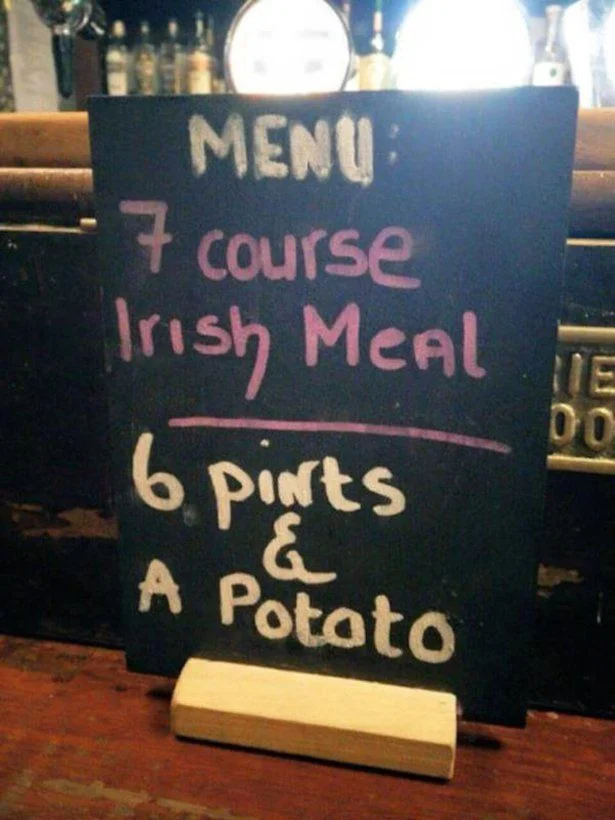 MENU:
7 course
Irish Meal
6 pints
&
A Potato
IE
00